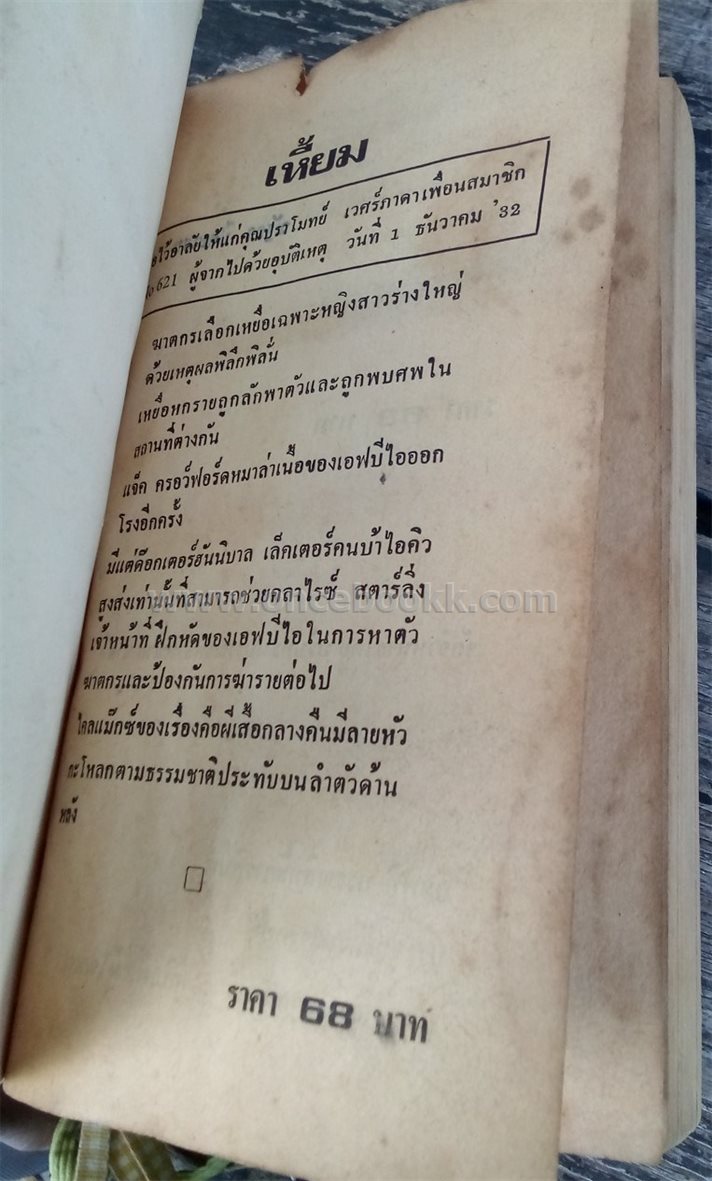 เหี้ยม
ไว้อาลัยให้แก่คุณปราโมทย์ เวศร์ภาดาเพื่อนสมาชิก
621 ผู้จากไปด้วยอุบัติเหตุ วันที่ 1 ธันวาคม '32
ฆาตกรเลือกเหยื่อเฉพาะหญิงสาวร่างใหญ่
ด้วยเหตุผลพิลึกพิลั่น
เหยื่อหกรายถูกลักพาตัวและถูกพบศพใน
สถานที่ต่างกัน
แจ็ค ครอว์ฟอร์ดหมาล่าเนื้อของเอฟบีไอออก
โรงอีกครั้ง
มีแต่ด๊อกเตอร์ฮันนิบาล เล็คเตอร์คนบ้าไอคิว
สูงส่งเท่านั้นที่สามารถช่วยคลาไรซ์ สตาร์ลิ่ง
เจ้าหน้าที่ฝึกหัดของเอฟบีไอในการหาตัว
ฆาตกรและป้องกันการฆ่ารายต่อไป
ไคลแม๊กซ์ของเรื่องคือผีเสื้อกลางคืนมีลายหัว
กะโหลกตามธรรมชาติประทับบนลำตัวด้าน
หลัง
ราคา 68 บาท